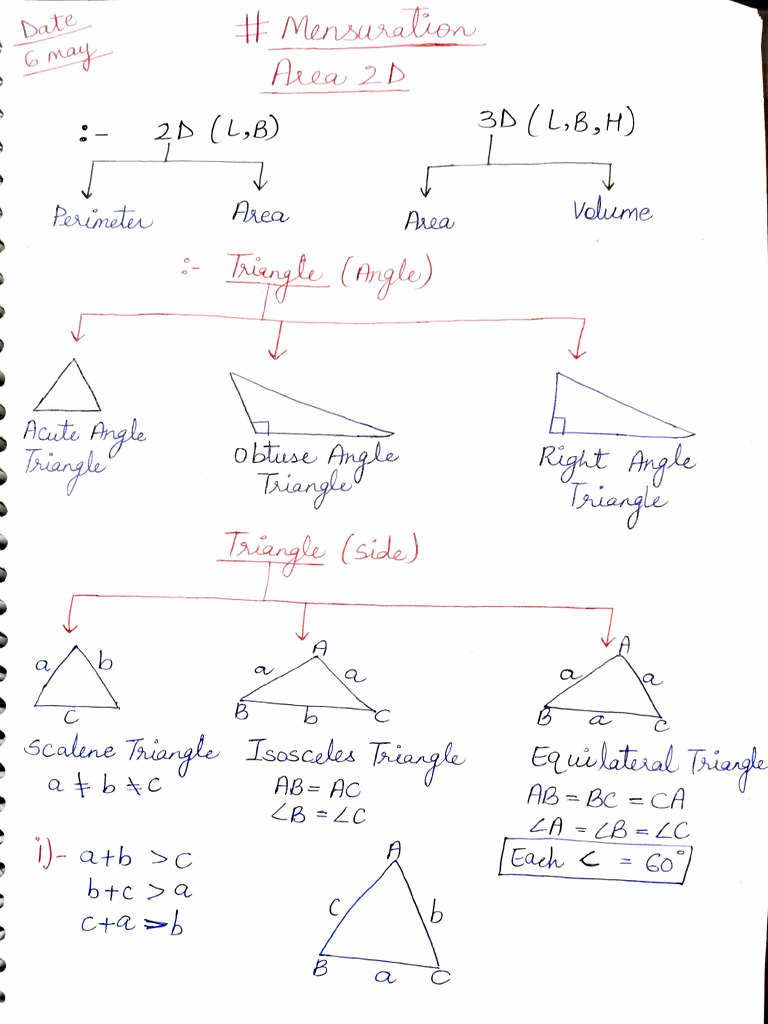 Date
6 may
# Mensuration
Area 2D
:- 2D (L,B) 3D (L,B,H)
Perimeter Area Area Volume
:- Triangle (Angle)
Acute Angle
Triangle
Obtuse Angle
Triangle
Right Angle
Triangle
Triangle (side)
a b
c
Scalene Triangle
a ≠ b ≠ c
A
a a
B b C
Isosceles Triangle
AB = AC
∠B = ∠C
A
a a
B a C
Equilateral Triangle
AB = BC = CA
∠A = ∠B = ∠C
Each ∠ = 60°
i)- a+b > c
b+c > a
c+a > b
A
c b
B a C